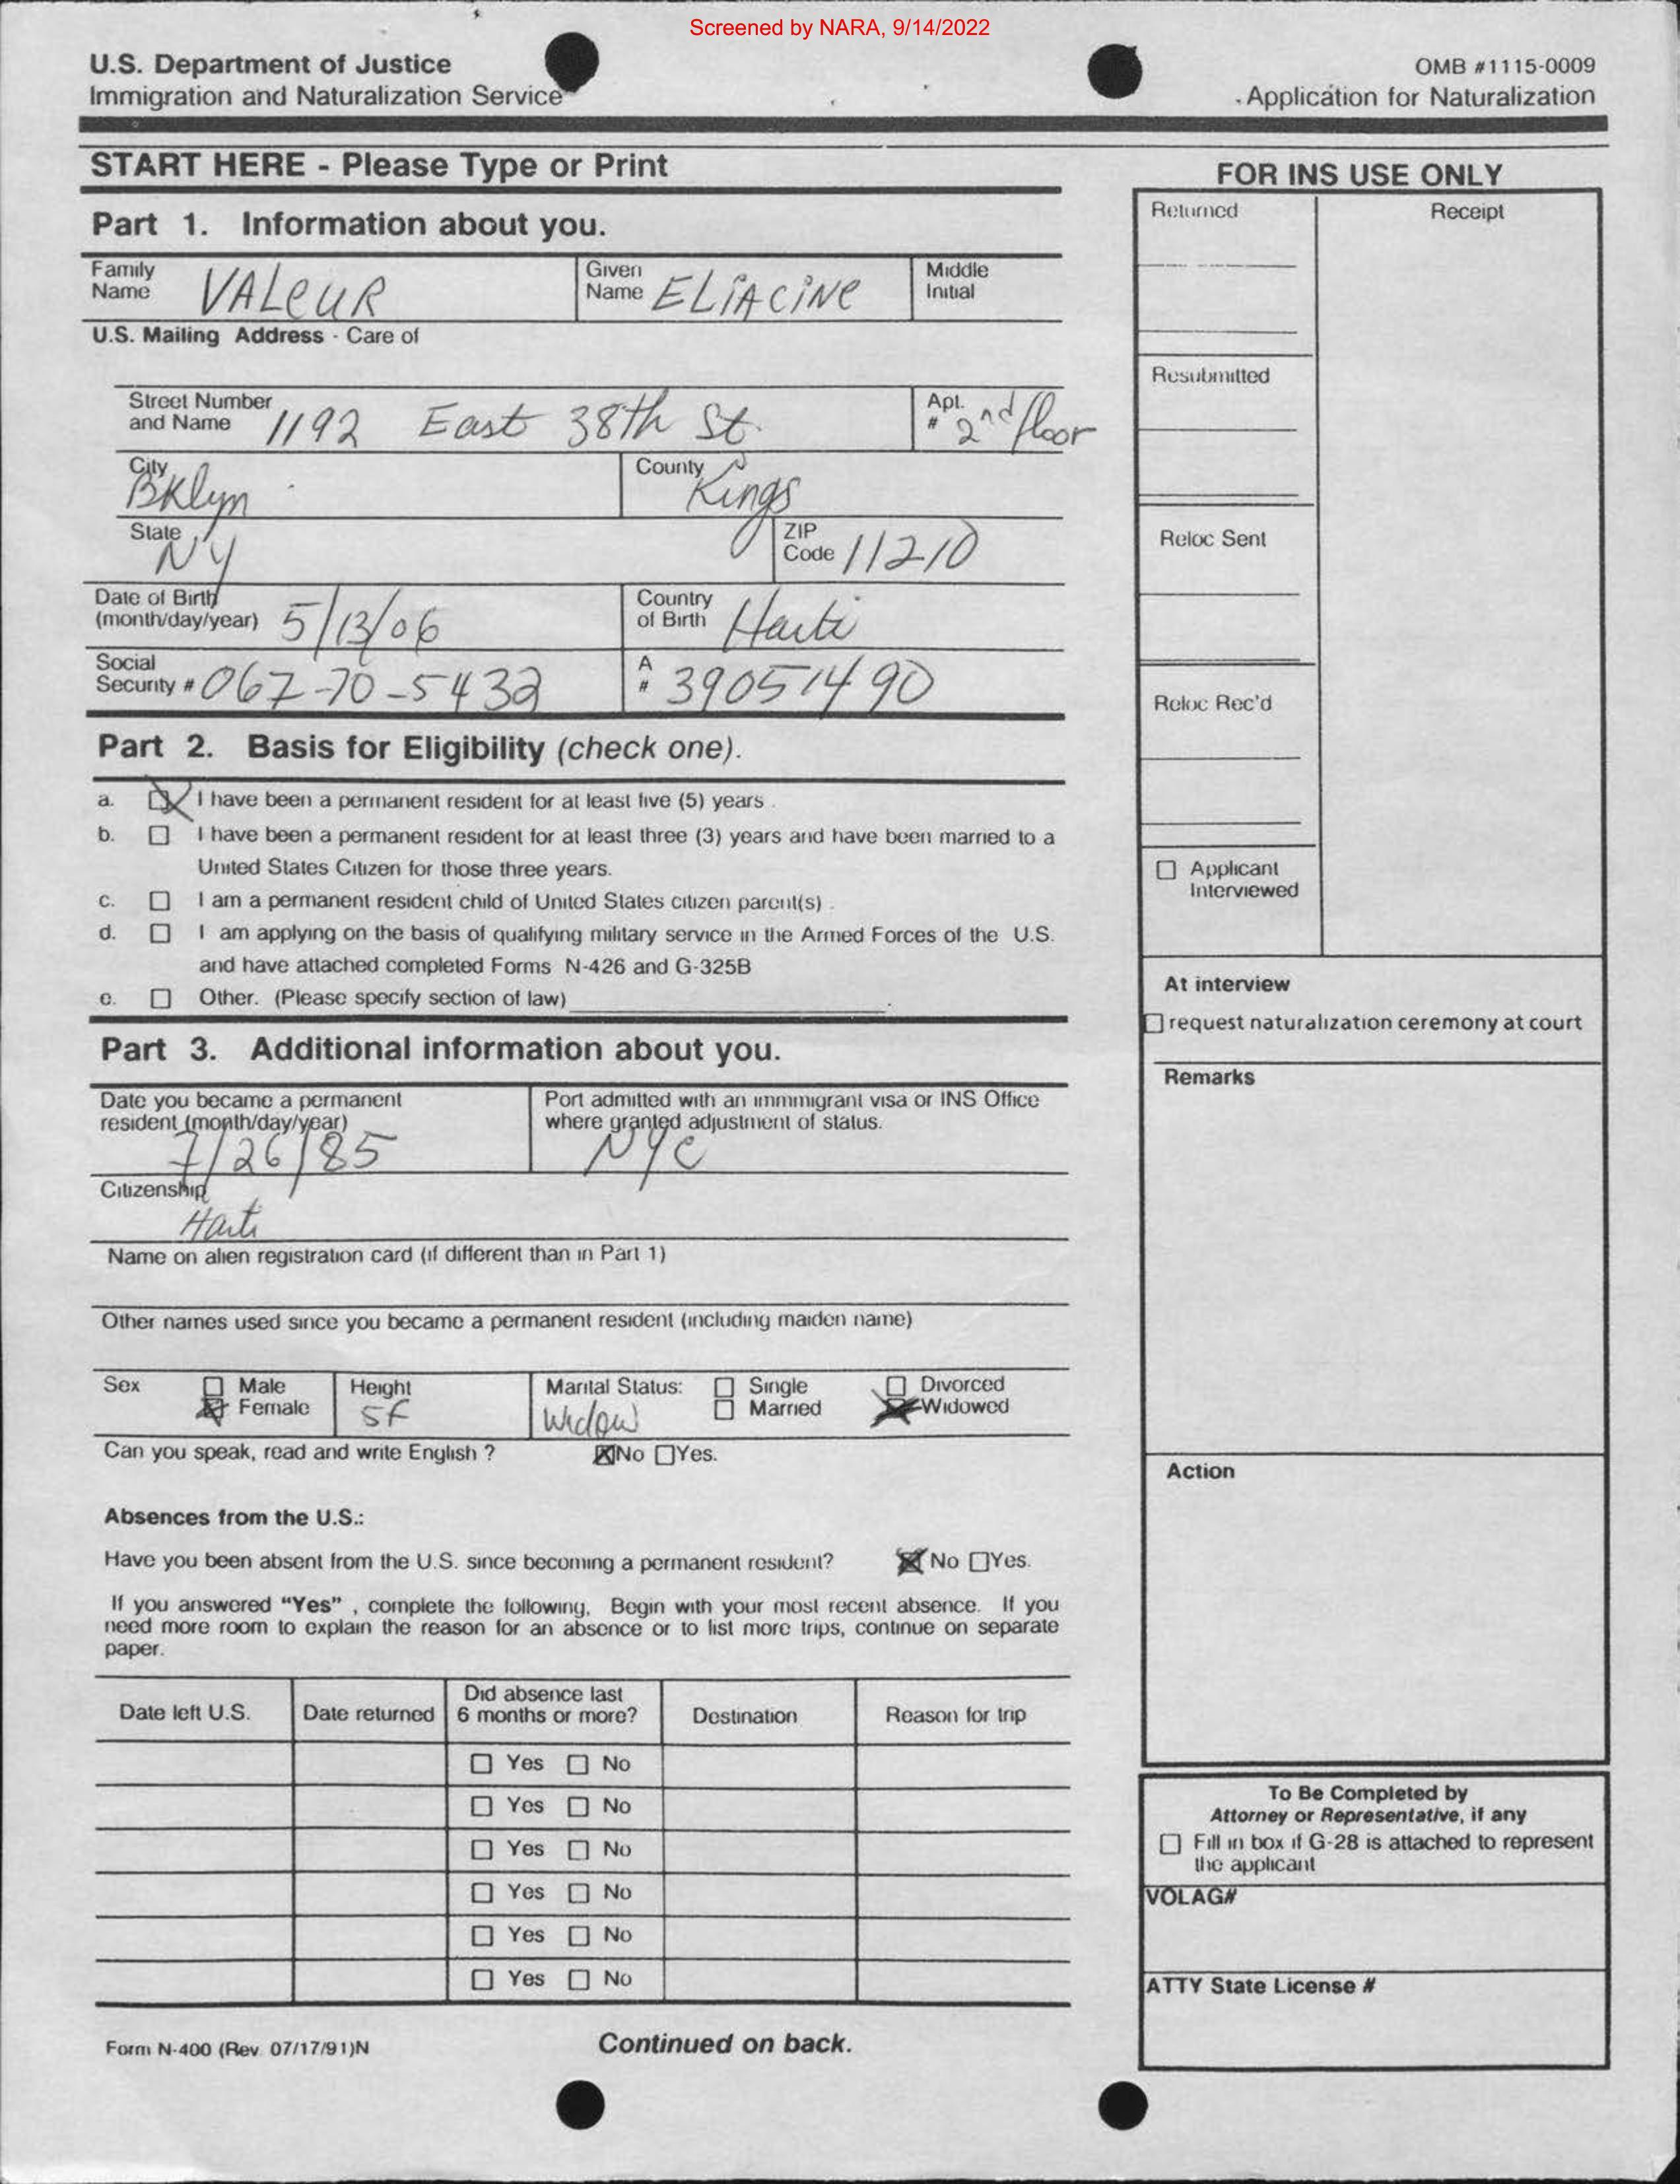 Screened by NARA, 9/14/2022
U.S. Department of Justice
Immigration and Naturalization Service
OMB #1115-0009
Application for Naturalization
START HERE - Please Type or Print
FOR INS USE ONLY
Part 1. Information about you.
Returned
Receipt
Family Name VALeUR
Given Name ELiACiNe
Middle Initial
U.S. Mailing Address - Care of
Resubmitted
Street Number and Name 1192 East 38th St.
Apt. # 2nd floor
City Bklyn
County Kings
State NY
ZIP Code 11210
Reloc Sent
Date of Birth (month/day/year) 5/13/06
Country of Birth Haiti
Social Security # 067-70-5432
A # 39051490
Reloc Rec'd
Part 2. Basis for Eligibility (check one).
a. I have been a permanent resident for at least five (5) years .
b. I have been a permanent resident for at least three (3) years and have been married to a
United States Citizen for those three years.
c. I am a permanent resident child of United States citizen parent(s) .
d. I am applying on the basis of qualifying military service in the Armed Forces of the U.S.
and have attached completed Forms N-426 and G-325B
e. Other. (Please specify section of law)
Applicant
Interviewed
At interview
request naturalization ceremony at court
Remarks
Part 3. Additional information about you.
Date you became a permanent
resident (month/day/year)
7/26/85
Port admitted with an immmigrant visa or INS Office
where granted adjustment of status.
NYC
Citizenship
Haiti
Name on alien registration card (if different than in Part 1)
Other names used since you became a permanent resident (including maiden name)
Sex
Male
Female
Height
5f
Marital Status:
Widow
Single
Married
Divorced
Widowed
Can you speak, read and write English ? No Yes.
Action
Absences from the U.S.:
Have you been absent from the U.S. since becoming a permanent resident? No Yes.
If you answered "Yes" , complete the following, Begin with your most recent absence. If you
need more room to explain the reason for an absence or to list more trips, continue on separate
paper.
Date left U.S.
Date returned
Did absence last
6 months or more?
Destination
Reason for trip
Yes No
Yes No
Yes No
Yes No
Yes No
Yes No
To Be Completed by
Attorney or Representative, if any
Fill in box if G-28 is attached to represent
the applicant
VOLAG#
ATTY State License #
Form N-400 (Rev 07/17/91)N
Continued on back.